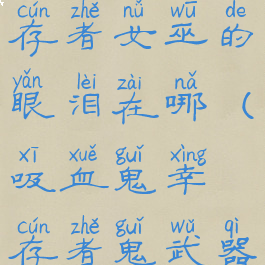 cún zhě nǚ wū de
存者女巫的
yǎn lèi zài nǎ
眼泪在哪(
xī xuě guǐ xìng
吸血鬼幸
cún zhě guǐ wǔ qì
存者鬼武器